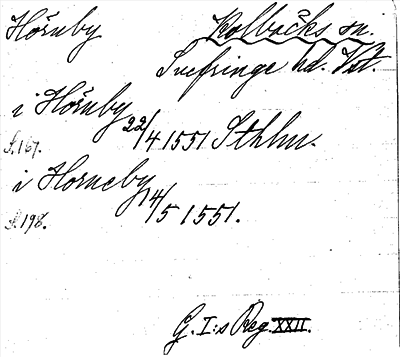 Hörnby Kolbäcks sn.
Snefringe hd. Vstm.
i Hörnby 22/4 1551 Sthlm.
S. 167.
i Horneby 14/5 1551.
S. 198.
G. I:s Reg. XXII.